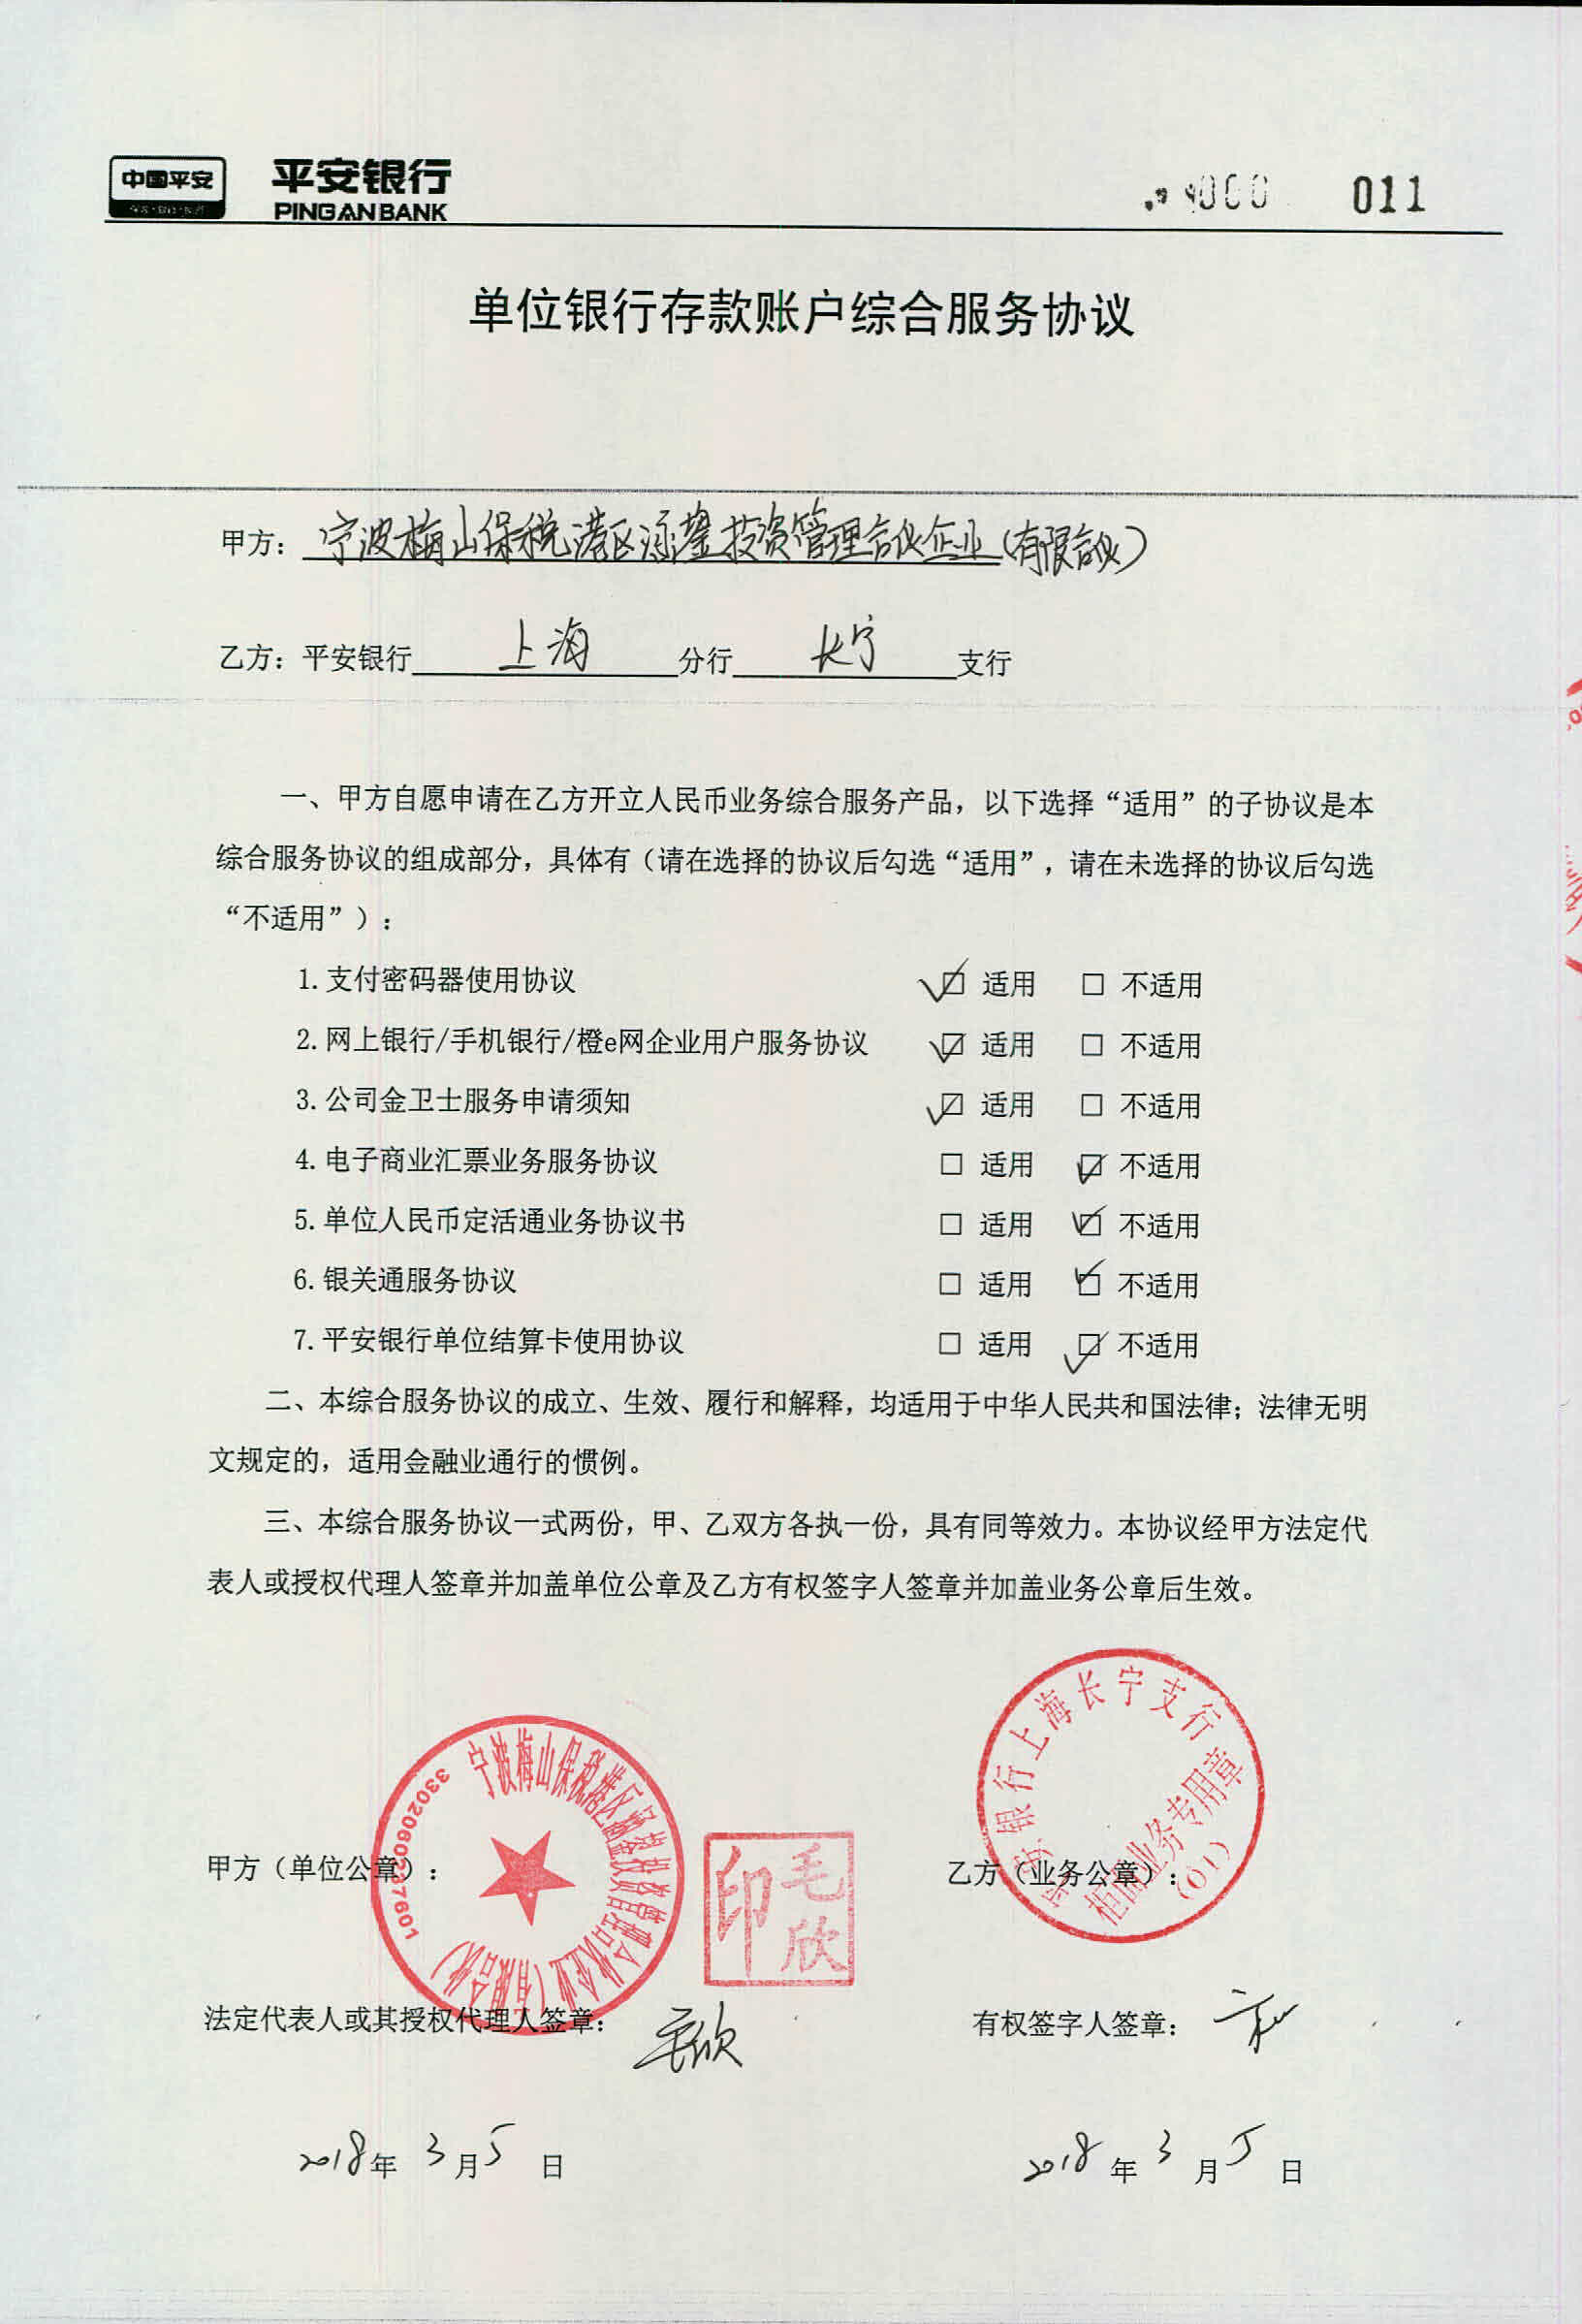 中国平安 平安银行
PINGAN BANK
011
单位银行存款账户综合服务协议
甲方：宁波梅山保税港区 投资管理合伙企业（有限合伙）
乙方：平安银行 上海 分行 长宁 支行
一、甲方自愿申请在乙方开立人民币业务综合服务产品，以下选择“适用”的子协议是本
综合服务协议的组成部分，具体有（请在选择的协议后勾选“适用”，请在未选择的协议后勾选
“不适用”）：
1.支付密码器使用协议 ☑ 适用 □ 不适用
2.网上银行/手机银行/橙e网企业用户服务协议 ☑ 适用 □ 不适用
3.公司金卫士服务申请须知 ☑ 适用 □ 不适用
4.电子商业汇票业务服务协议 □ 适用 ☑ 不适用
5.单位人民币定活通业务协议书 □ 适用 ☑ 不适用
6.银关通服务协议 □ 适用 ☑ 不适用
7.平安银行单位结算卡使用协议 □ 适用 ☑ 不适用
二、本综合服务协议的成立、生效、履行和解释，均适用于中华人民共和国法律；法律无明
文规定的，适用金融业通行的惯例。
三、本综合服务协议一式两份，甲、乙双方各执一份，具有同等效力。本协议经甲方法定代
表人或授权代理人签章并加盖单位公章及乙方有权签字人签章并加盖业务公章后生效。
宁波梅山保税港区 投资管理合伙企业（有限合伙）
平安银行上海长宁支行
柜面业务专用章
(01)
毛欣印
甲方（单位公章）： 乙方（业务公章）：
法定代表人或其授权代理人签章：毛欣 有权签字人签章：
2018年3月5日 2018年3月5日